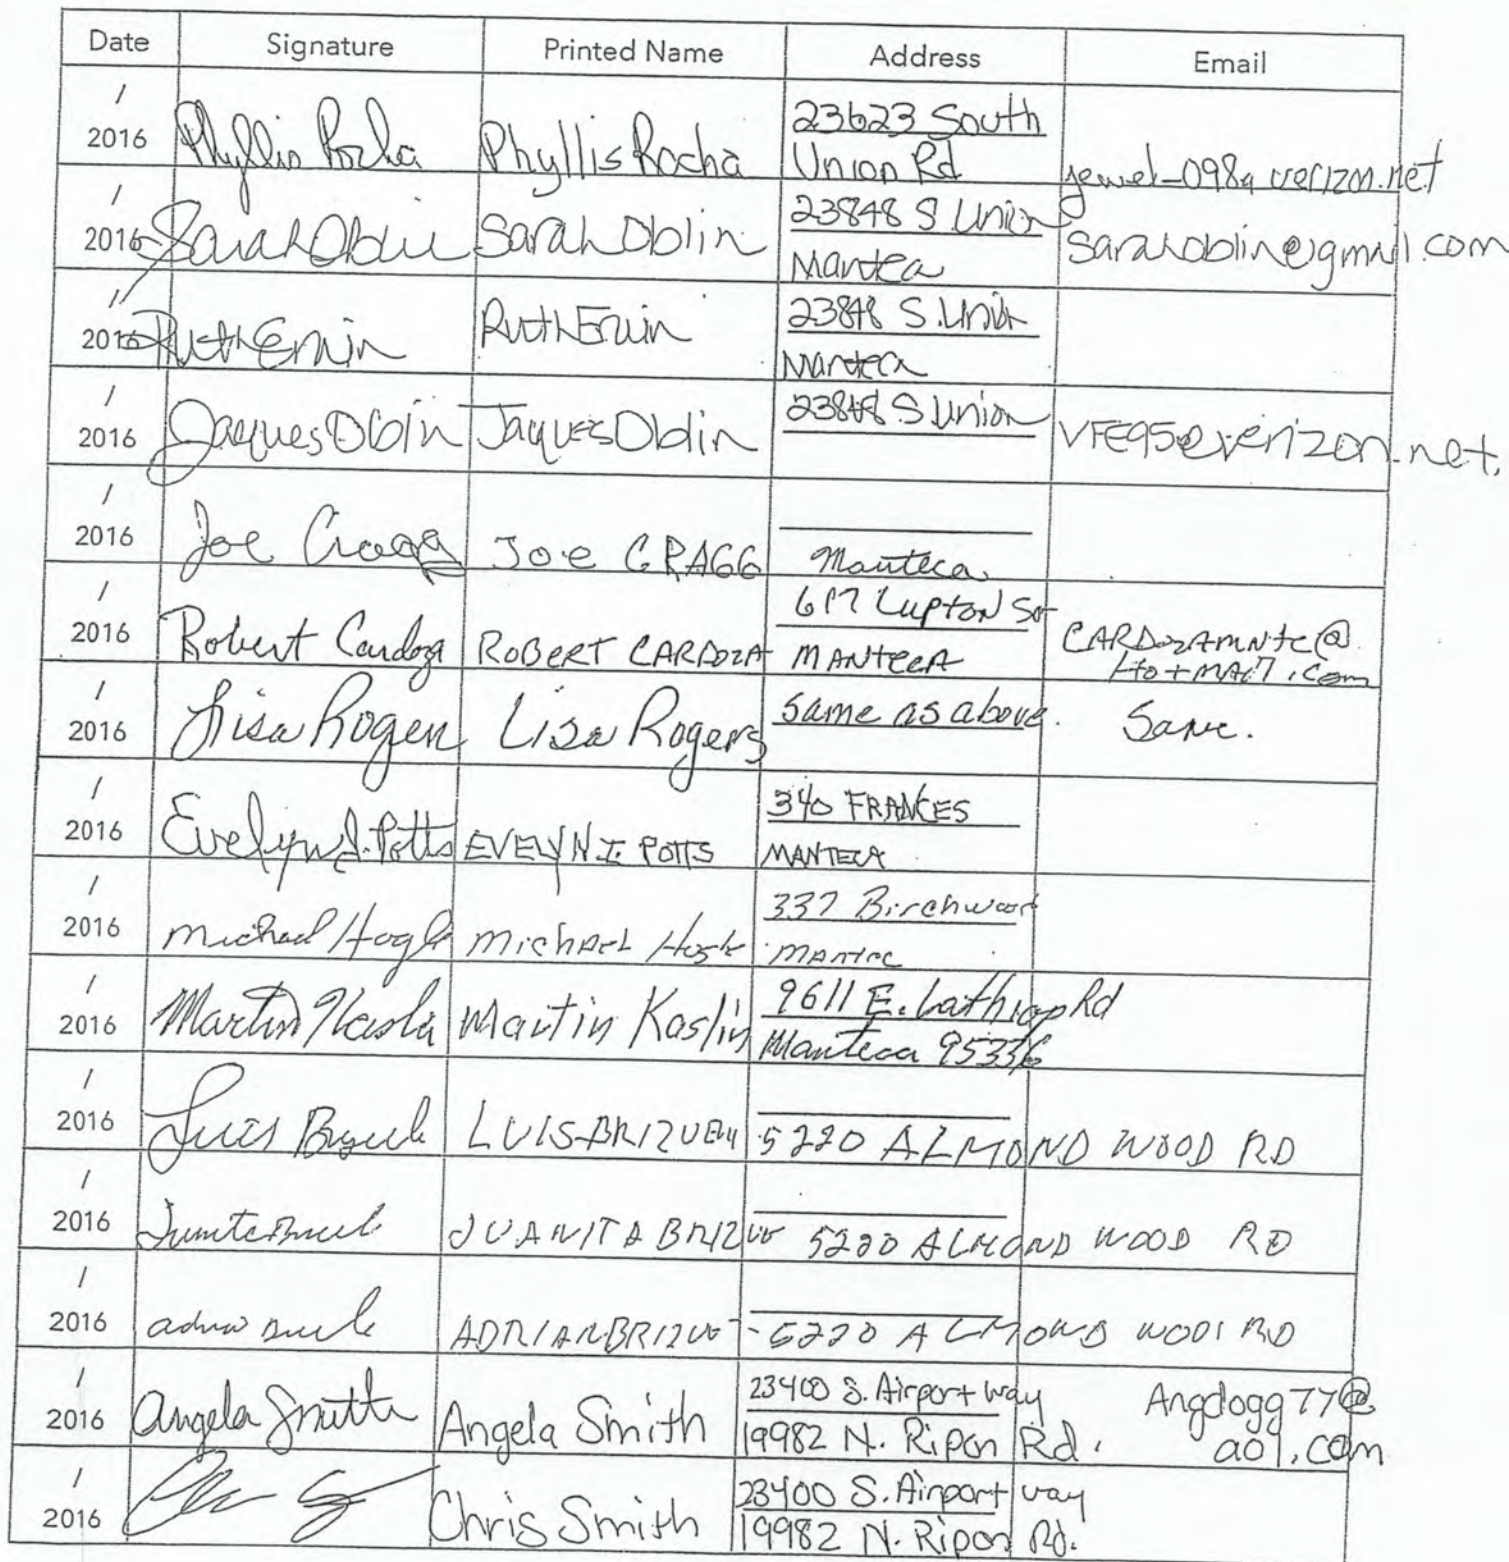 Date Signature Printed Name Address Email
/
2016 Phyllis Rocha Phyllis Rocha 23623 South
Union Rd jewel-098@verizon.net
2016 Sarah Oblin Sarah Oblin 23848 S Union
Manteca sarahoblin@gmail.com
/
2016 Ruth Erwin Ruth Erwin 23848 S. Union
Manteca
/
2016 Jaques Oblin Jaques Oblin 23848 S. Union VFE95@verizon.net.
/
2016 Joe Cragg Joe CRAGG Manteca
/
2016 Robert Cardoza ROBERT CARDOZA 617 Lupton St
MANTECA CARDozAmNtc@
HotmAil.com
/
2016 Lisa Rogers Lisa Rogers same as above. Same.
/
2016 Evelyn I. Potts EVELYN I. POTTS 340 FRANCES
MANTECA
/
2016 Michael Hogle Michael Hogle 337 Birchwood
/
2016 Martin Kaslin Martin Kaslin 9611 E. Lathrop Rd
Manteca 95336
/
2016 Luis LUIS BRIZUELA 5220 ALMOND WOOD RD
/
2016 JUANITA BRIZUE 5220 ALMOND WOOD RD
/
2016 ADRIAN BRIZUE 5220 ALMOND WOOD RD
/
2016 Angela Smith Angela Smith 23400 S. Airport way
19982 N. Ripon Rd. Angdogg77@
aol.com
/
2016 Chris Smith 23400 S. Airport way
19982 N. Ripon Rd.